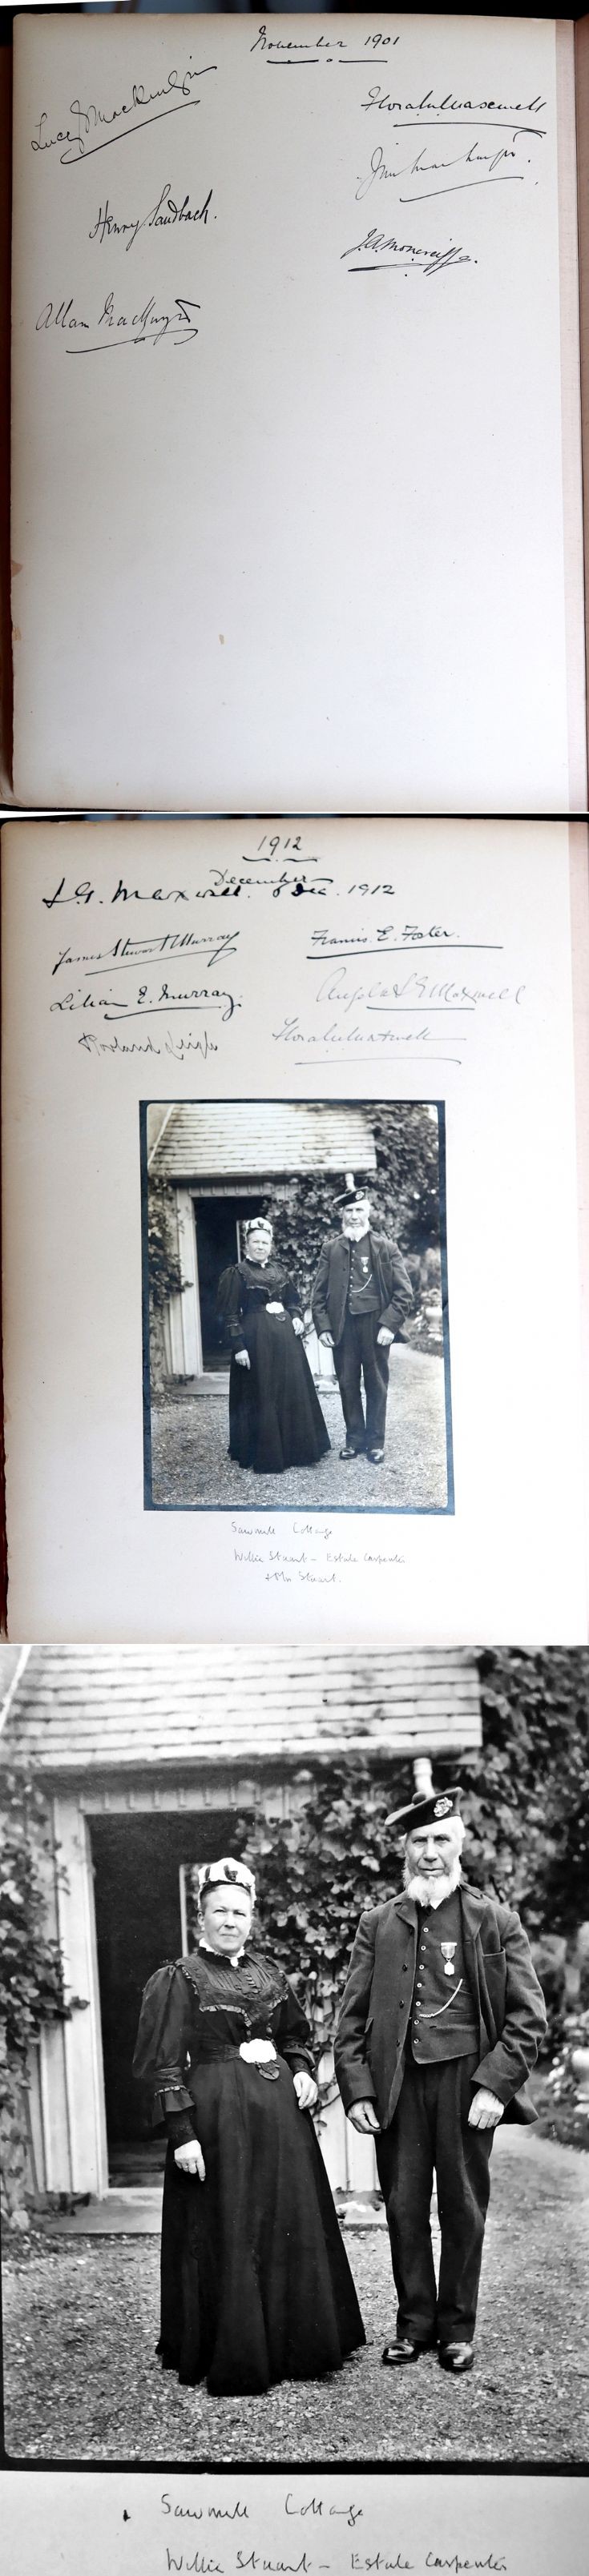 November 1901
Lucy
Flora
Henry Sandbach.
J.A. Moncreiffe.
Allan
1912
December
Maxwell. Dec. 1912
James Stewart Murray
Francis E. Foster.
Lilian E. Murray.
Angela Maxwell
Flora Maxwell
Sawmill Cottage
Willie Stuart – Estate Carpenter
& Mrs Stuart.
Sawmill Cottage
Willie Stuart – Estate Carpenter